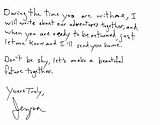 During the time you are with me, I
will write about our adventures together, and
when you are ready to be returned, just
let me know and I'll send you home.
Don't be shy, let's make a beautiful
future together.
Yours Truly,